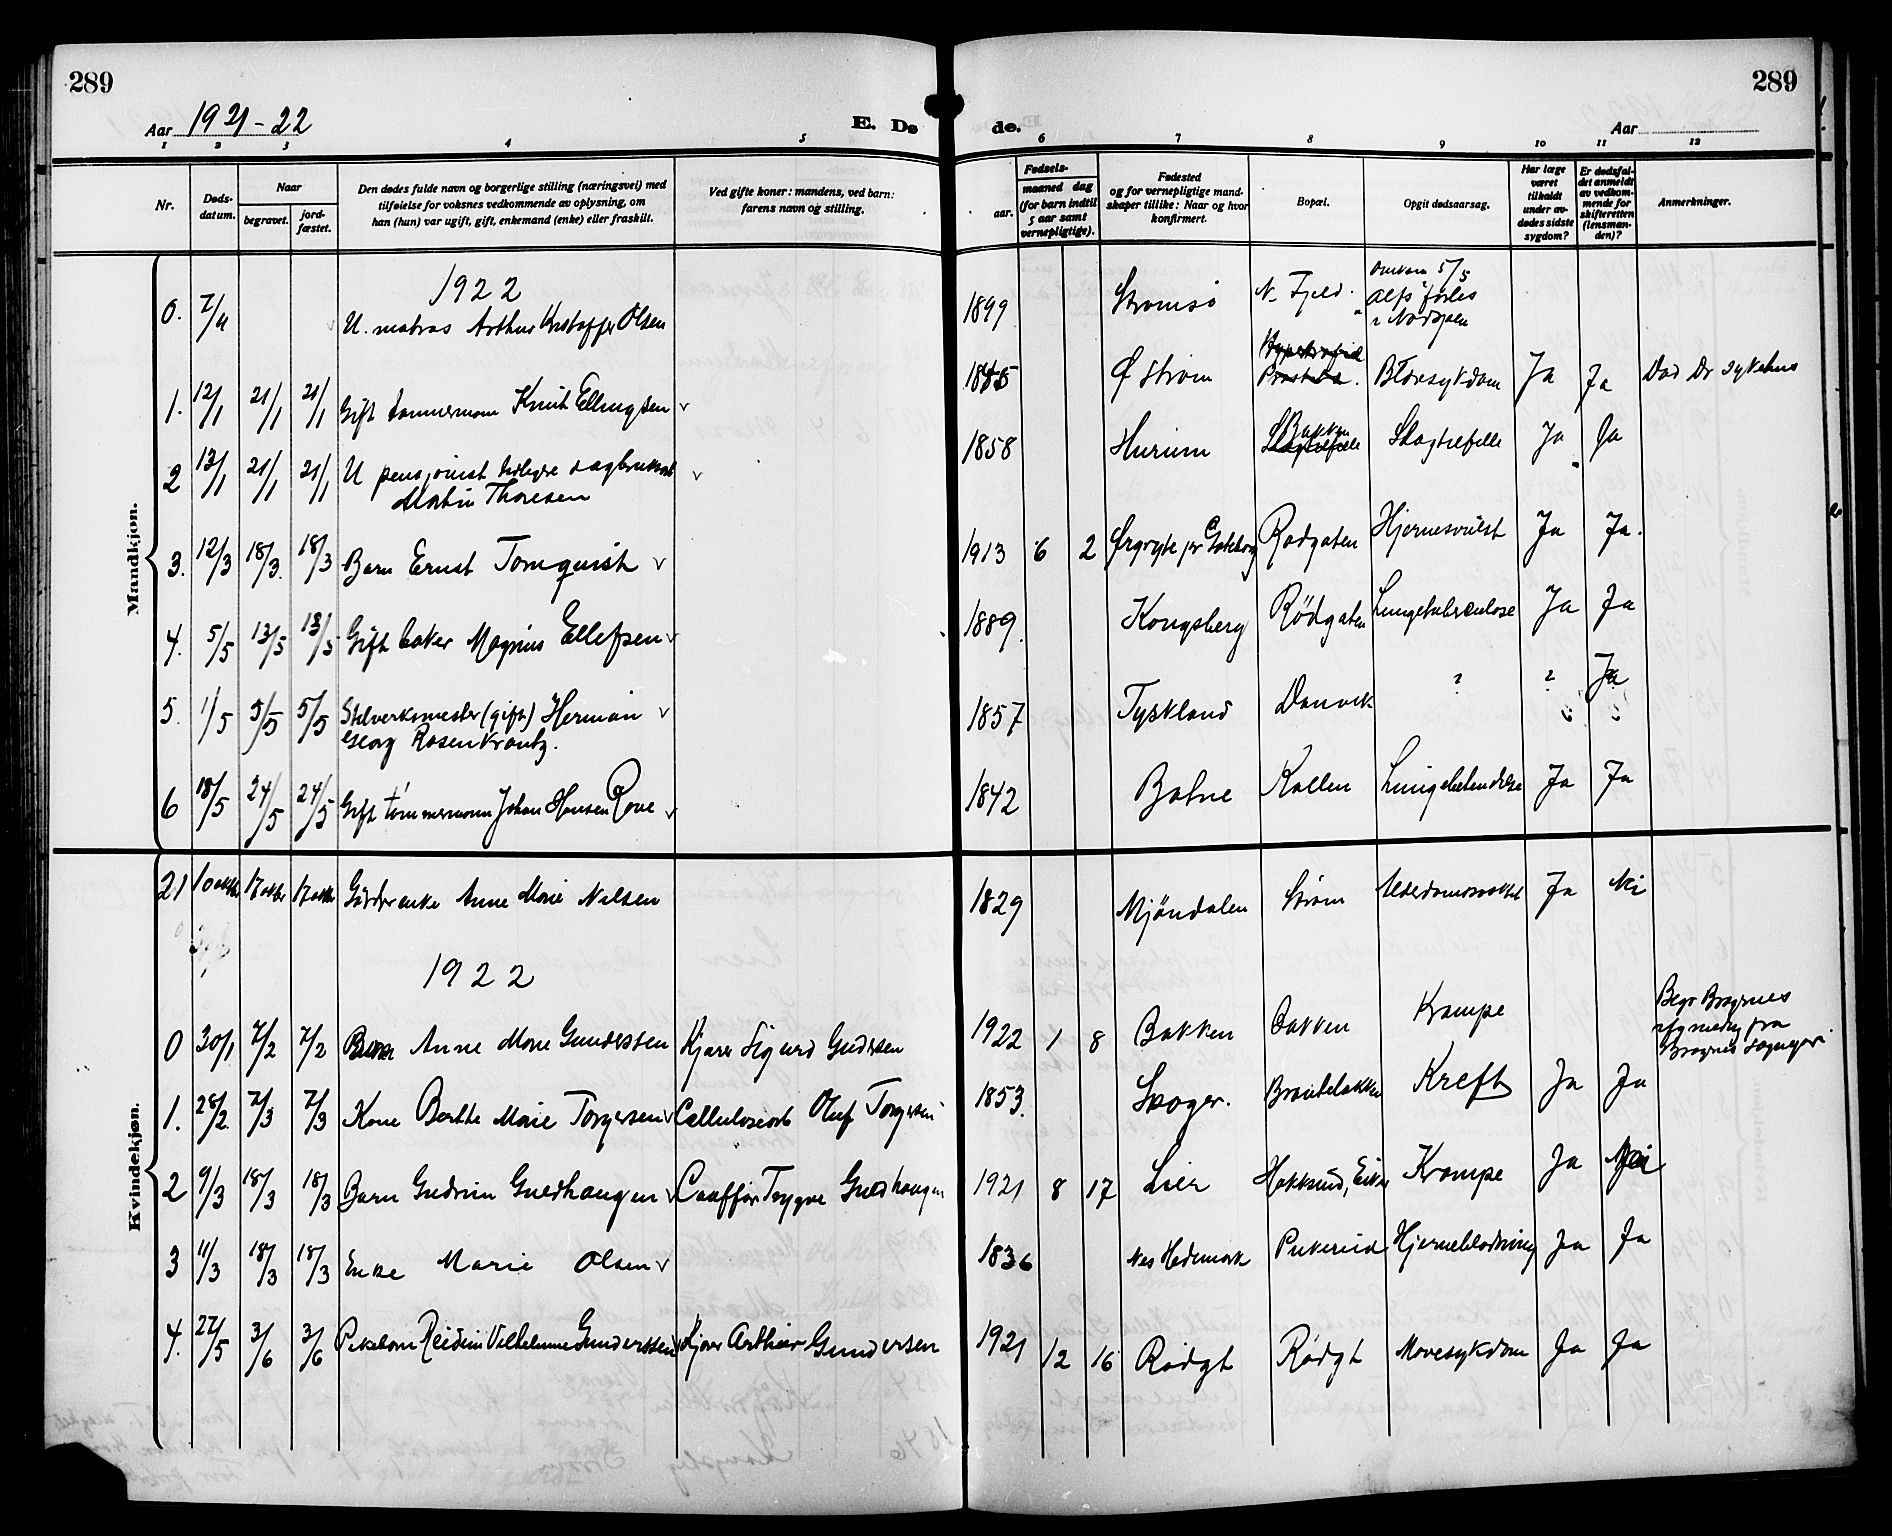 289
289
Aar 1921-22
E. Dø
de.
Aar
1 2 3 4 5 6 7 8 9 10 11 12
Nr.
Døds-
datum.
Naar
begravet.
jord-
fæstet.
Den dødes fulde navn og borgerlige stilling (næringsvei) med
tilføielse for voksnes vedkommende av oplysning, om
han (hun) var ugift, gift, enkemand (enke) eller fraskilt.
Ved gifte koner: mandens, ved barn:
farens navn og stilling.
Fødsels-
aar.
maaned dag
(for barn indtil
5 aar samt
vernepligtige).
Fødested
og for vernepligtige mand-
skaper tillike: Naar og hvor
konfirmert.
Bopæl.
Opgit dødsaarsag.
Har læge
været
tilkaldt
under av-
dødes sidste
sygdom?
Er dødsfal-
det anmeldt
av vedkom-
mende for
skifteretten
(lensman-
den)?
Anmerkninger.
Mandkjøn.
1922
0. 7/4 U. matros Arthur Kristoffer Olsen 1899 Strømsø N. Fjeld. Omkom 5/5
"Alfs" forlis
i Nordsjøen
1. 12/1 21/1 21/1 Gift tømmermann Knut Ellingsen v Ø Strøm Blæresykdom Ja Ja Død Dr sykehus
2 13/1 21/1 21/1 U pensjonist tidligere sagbruksarb
Martin Thoresen v 1858 Hurum Bakken Slagtilfelle Ja Ja
3. 12/3 18/3. 18/3 Barn Ernst Tornquist v 1913 6 2 Ørgryte pr Gøteborg Rødgaten Hjernesvulst Ja Ja.
4. 5/5 13/5 13/5 Gift baker Magnus Ellefsen v 1889. Kongsberg Rødgaten Lungetuberculose Ja Ja
5. 1/5 5/5 5/5 Stolverksmester (gift) Herman v
Georg Rosenkrantz. 1857 Tyskland Danvik ? ? Ja
6 18/5 24/5 24/5 Gift tømmermann Johan Hansen Rove v 1842 Botne Kollen Lungebetendelse Ja Ja
Kvindekjøn.
21 10 oktbr 17 oktbr 17 oktbr Gårderenke Anne Marie Nilsen 1829 Mjöndalen Strøm Alderdomssvakhet Ja Nei
1922
0 30/1 7/2 7/2 Barn Anne Marie Gundersen Kjører Sigurd Gundersen 1922 1 8 Bakken Bakken Krampe Begr Bragernes
Bragernes sogn
1. 28/2 7/3 7/3 Kone Berthe Marie Torgersen v Cellulosearb Oluf Torgersen 1853. Skoger. Branteløkken Kreft Ja Ja
2 9/3 18/3 18/3 Barn Gudrun Guldhaugen v Chauffør Trygve Guldhaugen 1921 8 17 Lier Hokksund, Eiker Krampe Ja Nei
3 11/3 18/3 18/3 Enke Marie Olsen v 1836 Nes Hedemark Pukerud Hjerneblødning Ja Ja
4. 27/5 3/6 3/6 Pikebarn Reidun Vilhelmine Gunderssen v Kjører Arthur Gundersen 1921 12 16 Rødgt Rødgt Mavesykdom Ja Ja